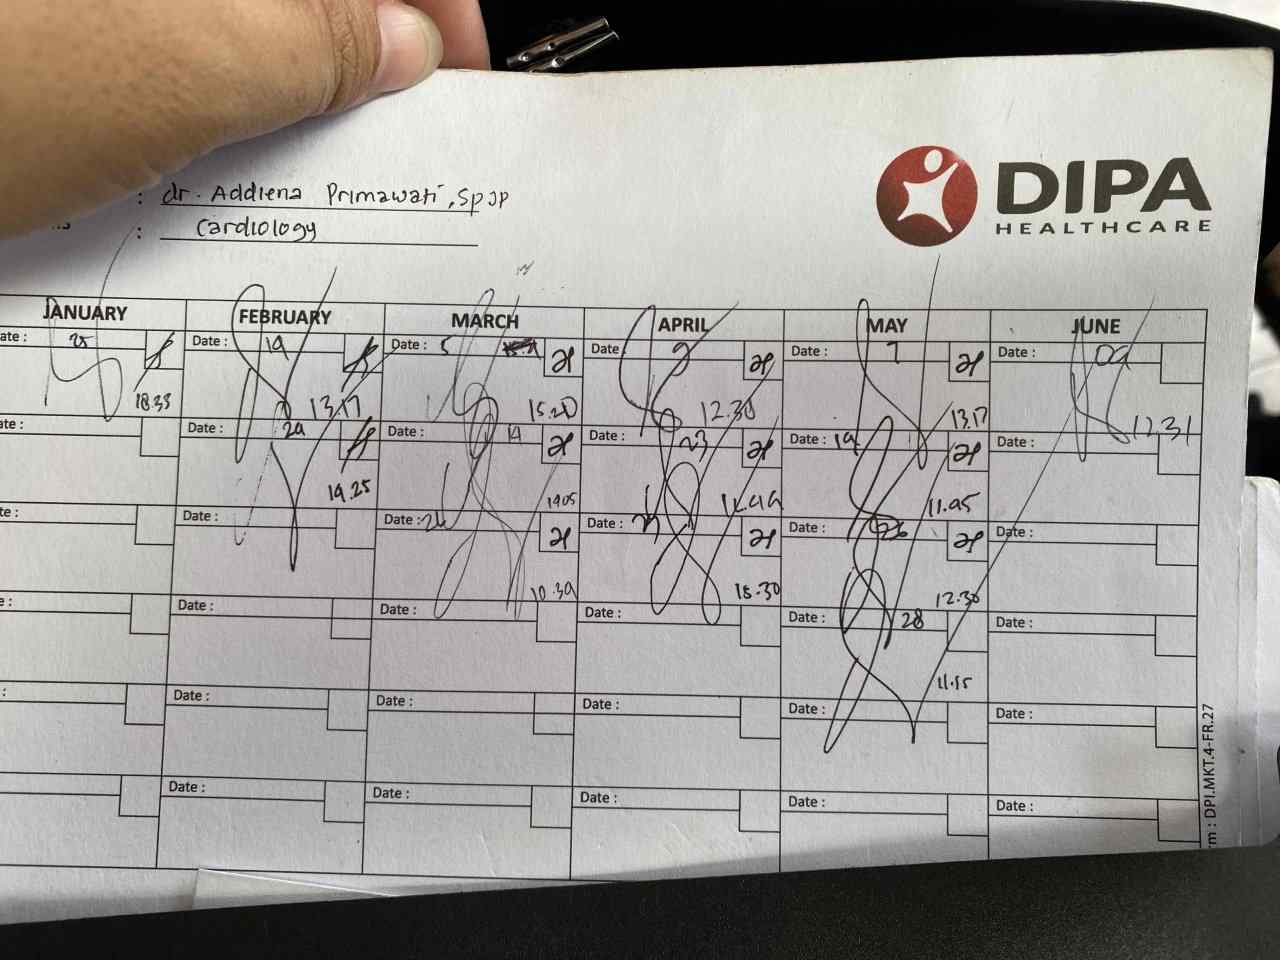 : dr. Addiena Primawati, SpJP
: Cardiology
DIPA
HEALTHCARE
JANUARY FEBRUARY MARCH APRIL MAY JUNE
ate : 25 Date : 19 Date : 5 Date : 9 Date : 7 Date : 09
18.33 13.17 15.20 12.30 13.17 12.31
ate : Date : 29 Date : 19 Date : 23 Date : 19 Date :
19.25 1905 11.95
te : Date : Date : 26 Date : Date : 26 Date :
10.39 15.30 12.30
e : Date : Date : Date : Date : 28 Date :
11.15
: Date : Date : Date : Date : Date :
Date : Date : Date : Date : Date :
rm : DPI.MKT.4-FR.27